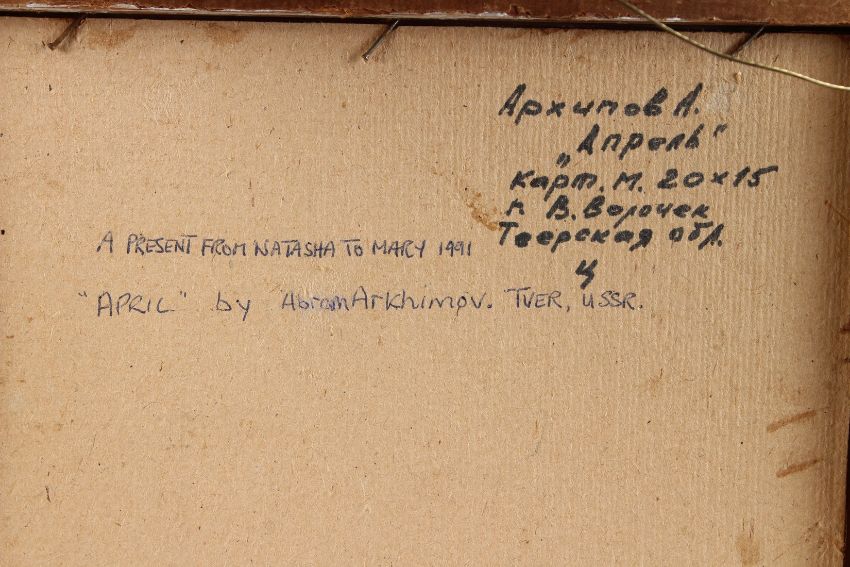 Архипов А.
„Апрель"
карт. м. 20x15
г. В. Волочек
Тверская обл.
ц
A PRESENT FROM NATASHA TO MARY 1991
"APRIL" by Abram Arkhimov. TVER, USSR.